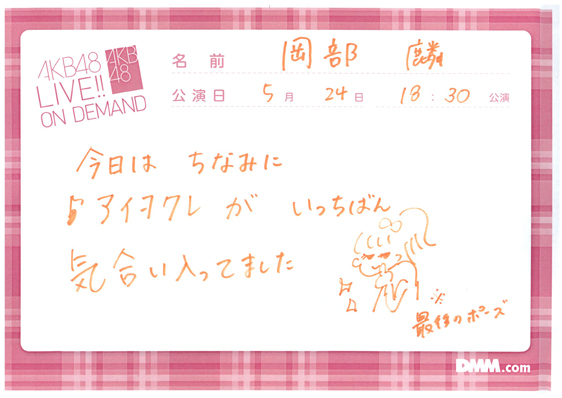 AKB48
LIVE!!
ON DEMAND
AKB
48
名前 岡部 麟
公演日 5月 24日 18:30 公演
今日は ちなみに
♪アイヲクレ が いっちばん
気合い入ってました
※
最後のポーズ
DMM.com